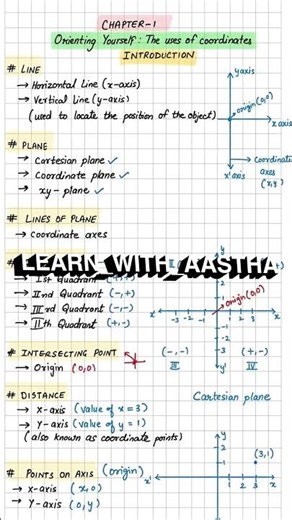 CHAPTER-1
Orienting Yourself: The uses of coordinates
INTRODUCTION
# LINE
→ Horizontal Line (x-axis)
→ Vertical Line (y-axis)
(used to locate the position of the object)
y axis
origin (0,0)
x axis
x' axis
→ Coordinate
axes
(x,y)
# PLANE
→ Cartesian plane ✓
→ Coordinate plane ✓
→ xy-plane ✓
# LINES OF PLANE
→ Coordinate axes
LEARN WITH AASTHA
→ IInd Quadrant (-,+)
→ IIIrd Quadrant (-,-)
→ IIth Quadrant (+,-)
y
3
2
1
origin (0,0)
x' -3 -2 -1 1 2 3 x
-1
-2
-3
y'
(-,-) (+,-)
III IV
Cartesian plane
# INTERSECTING POINT
→ Origin (0,0)
# DISTANCE
→ X-axis (value of x=3)
→ Y-axis (value of y=1)
(also known as coordinate points)
# POINTS ON AXIS (origin)
→ X-axis (x,0)
→ Y-axis (0,y)
y
2
1
(3,1)
x' 1 2 3 x